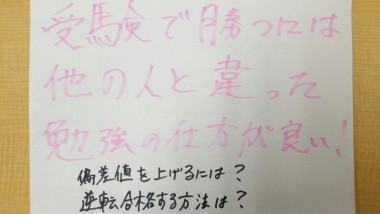 受験で勝つには
他の人と違った
勉強の仕方が良い!
偏差値を上げるには?
逆転合格する方法は?